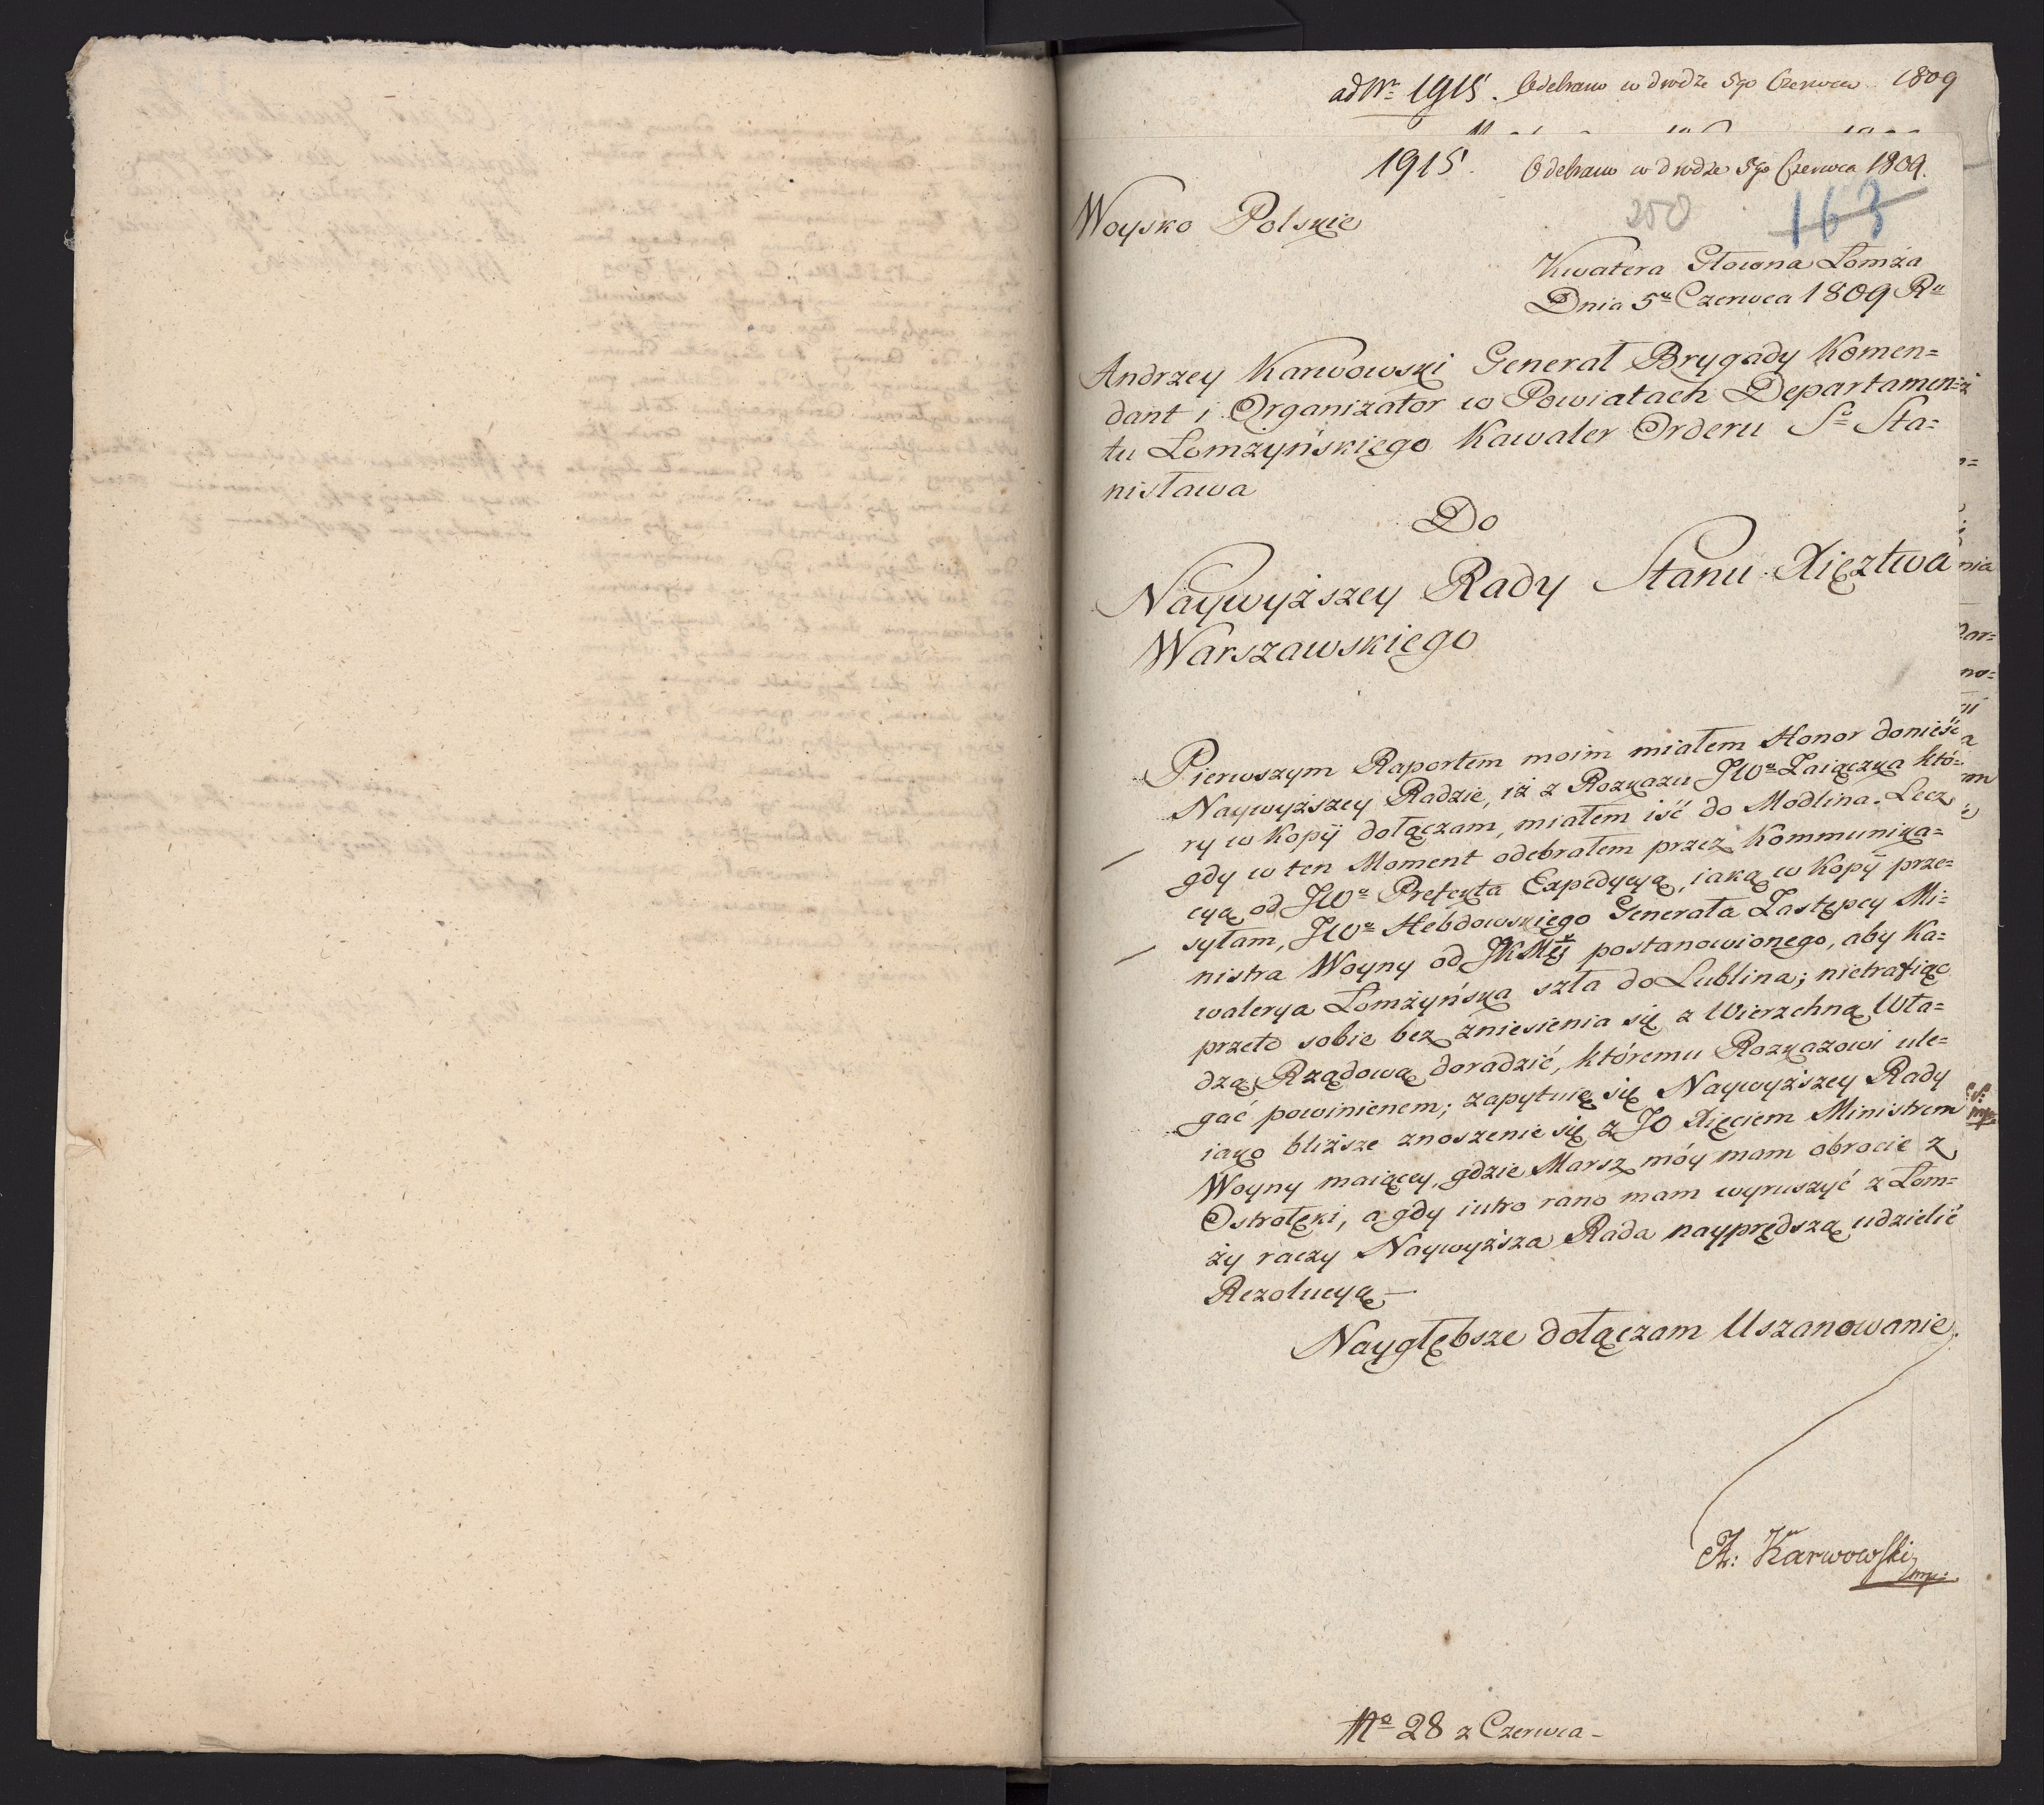 ad Nr 1915. Odebrano w drodze 5go Czerwca 1809
1915. Odebrano w drodze 5go Czerwca 1809.
250 163
Woysko Polskie
Kwatera Głowna Łomża
Dnia 5o Czerwca 1809 Ru
Andrzey Karwowski Generał Brygady Komen=
dant i Organizator w Powiatach Departamen=
tu Łomżyńskiego Kawaler Orderu So Sta=
nisława
Do
Naywyższey Rady Stanu Xięztwa
Warszawskiego
Pierwszym Raportem moim miałem Honor donieść
Naywyższey Radzie, iż z Rozkazu JWo Zaiączka któ=
ry w Kopij dołączam, miałem iść do Modlina. Lecz
gdy w ten Moment odebrałem przez Kommunika=
cyą od JWo Prefekta Expedycyą, iaką w Kopij prze=
syłam, JWo Hebdowskiego Generała Zastępcy Mi=
nistra Woyny od JKMci postanowionego, aby Ka=
walerya Łomżyńska szła do Lublina; nietrafiąc
przeto sobie bez zniesienia się z Wierzchną Wła=
dzą Rządową doradzić, któremu Rozkazowi ule=
gać powinienem; zapytuię się Naywyższey Rady
iako bliższe znoszenie się z JO Xięciem Ministrem
Woyny maiącey, gdzie Marsz móy mam obrocić z
Ostrołęki, a gdy iutro rano mam wyruszyć z Łom=
ży raczy Naywyższa Rada nayprędszą udzielić
Rezolucyą —
Naygłębsze dołączam Uszanowanie
A: Karwowski mp:
No 28 z Czerwca -